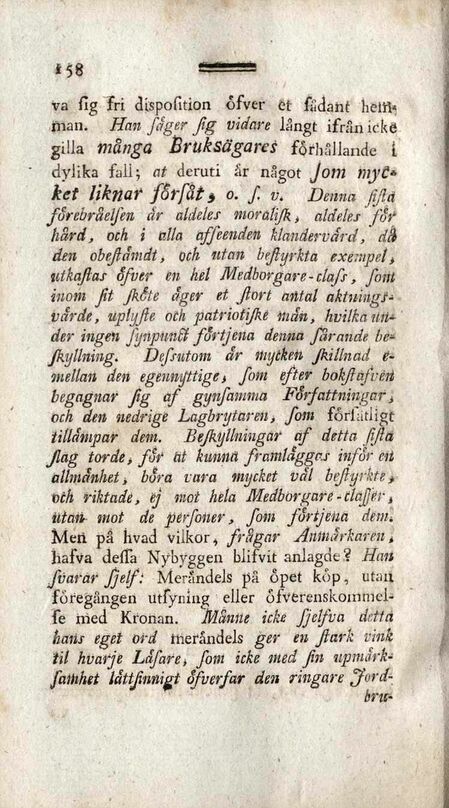 158
va sig fri disposition öfver et sådant hem-
man. Han säger sig vidare långt ifrån icke
gilla många Bruksägares förhållande i
dylika fall; at deruti är något som myc-
ket liknar försåt, o. s. v. Denna sista
förebråelsen är aldeles moralisk, aldeles för
hård, och i alla afseenden klandervärd, då
den obestämdt, och utan bestyrkta exempel,
utkastas öfver en hel Medborgare-class, som
inom sit sköte äger et stort antal aktnings-
värde, uplyste och patriotiske män, hvilka un-
der ingen synpunct förtjena denna sårande be-
skyllning. Dessutom är mycken skillnad e-
mellan den egennyttige, som efter bokstafven
begagnar sig af gynsamma Författningar,
och den nedrige Lagbrytaren, som försåtligt
tillämpar dem. Beskyllningar af detta sista
slag torde, för at kunna framläggas inför en
allmänhet, böra vara mycket väl bestyrkte,
och riktade, ej mot hela Medborgare-classer,
utan mot de personer, som förtjena dem.
Men på hvad vilkor, frågar Anmärkaren,
hafva dessa Nybyggen blifvit anlagde? Han
svarar sjelf: Merändels på öpet köp, utan
föregången utsyning eller öfverenskommel-
se med Kronan. Månne icke sjelfva detta
hans eget ord merändels ger en stark vink
til hvarje Läsare, som icke med sin upmärk-
samhet lättsinnigt öfverfar den ringare Jord-
bru-